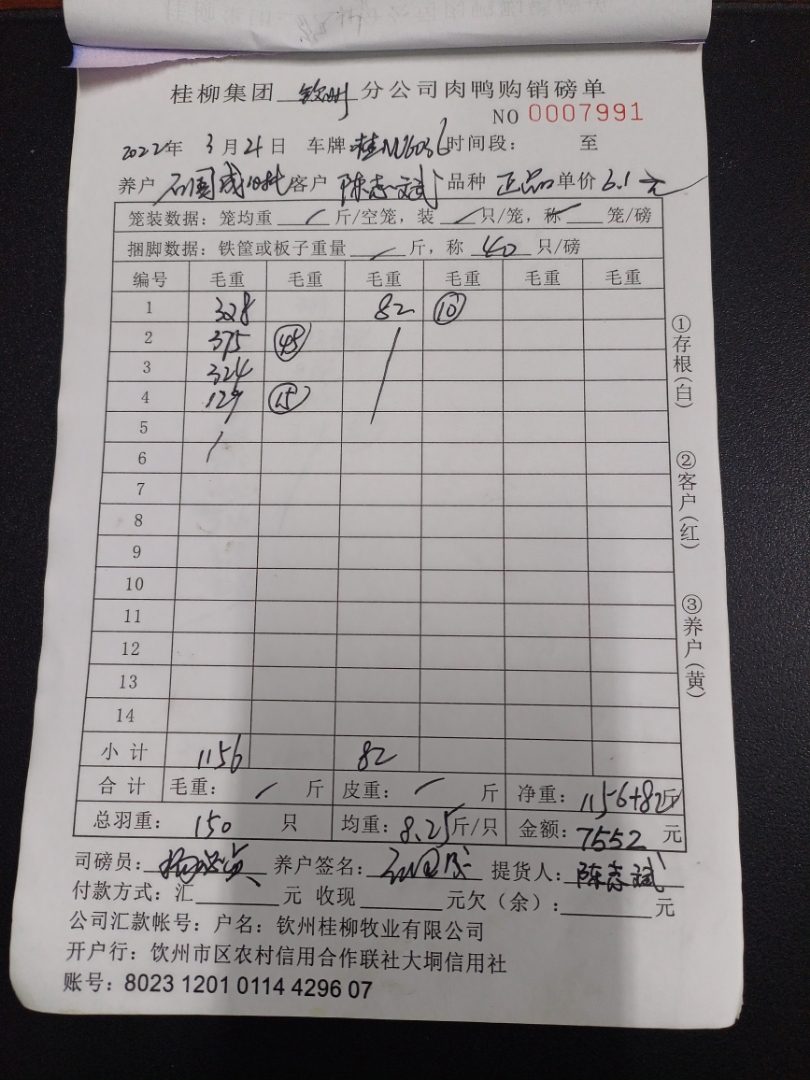 桂柳集团 钦州 分公司肉鸭购销磅单
NO 0007991
2022年 3月21日 车牌:桂N06036 时间段: 至
养户 石国成 客户 陈志斌 品种 正品 单价 6.1元
笼装数据:笼均重 / 斤/空笼,装 / 只/笼,称 笼/磅
捆脚数据:铁筐或板子重量 / 斤,称 40 只/磅
编号 毛重 毛重 毛重 毛重 毛重 毛重
1 328 82 10
2 375 45
3 324
4 129 15
5
6
7
8
9
10
11
12
13
14
小计 1156 82
合计 毛重: / 斤 皮重: / 斤 净重:1156+82斤
总羽重: 150 只 均重:8.25斤/只 金额:7552 元
司磅员: 养户签名: 提货人:陈志斌
付款方式:汇 元 收现 元欠(余): 元
公司汇款帐号:户名:钦州桂柳牧业有限公司
开户行:钦州市区农村信用合作联社大垌信用社
账号:8023 1201 0114 4296 07
①存根(白)
②客户(红)
③养户(黄)